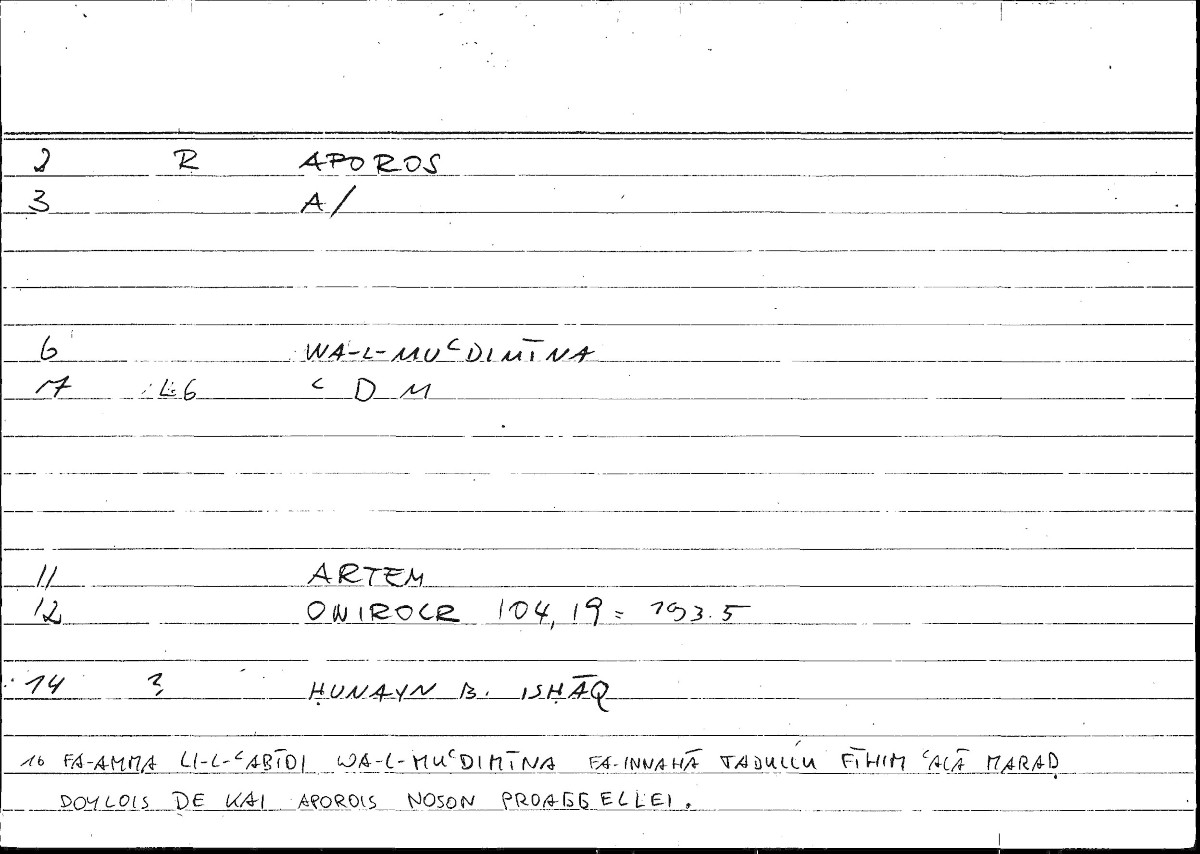 2 R APOROS
3 A/
6 WA-L-MUʿDIMĪNA
17 L6 ʿ D M
11 ARTEM
12 ONIROCR 104,19 = 193.5
14 ? ḤUNAYN B. ISḤĀQ
16 FA-AMMA LI-L-ʿABĪDI WA-L-MUʿDIMĪNA FA-INNAHĀ TADULLU FĪHIM ʿALĀ MARAḌ
DOYLOIS DE KAI APOROIS NOSON PROAGGELLEI.